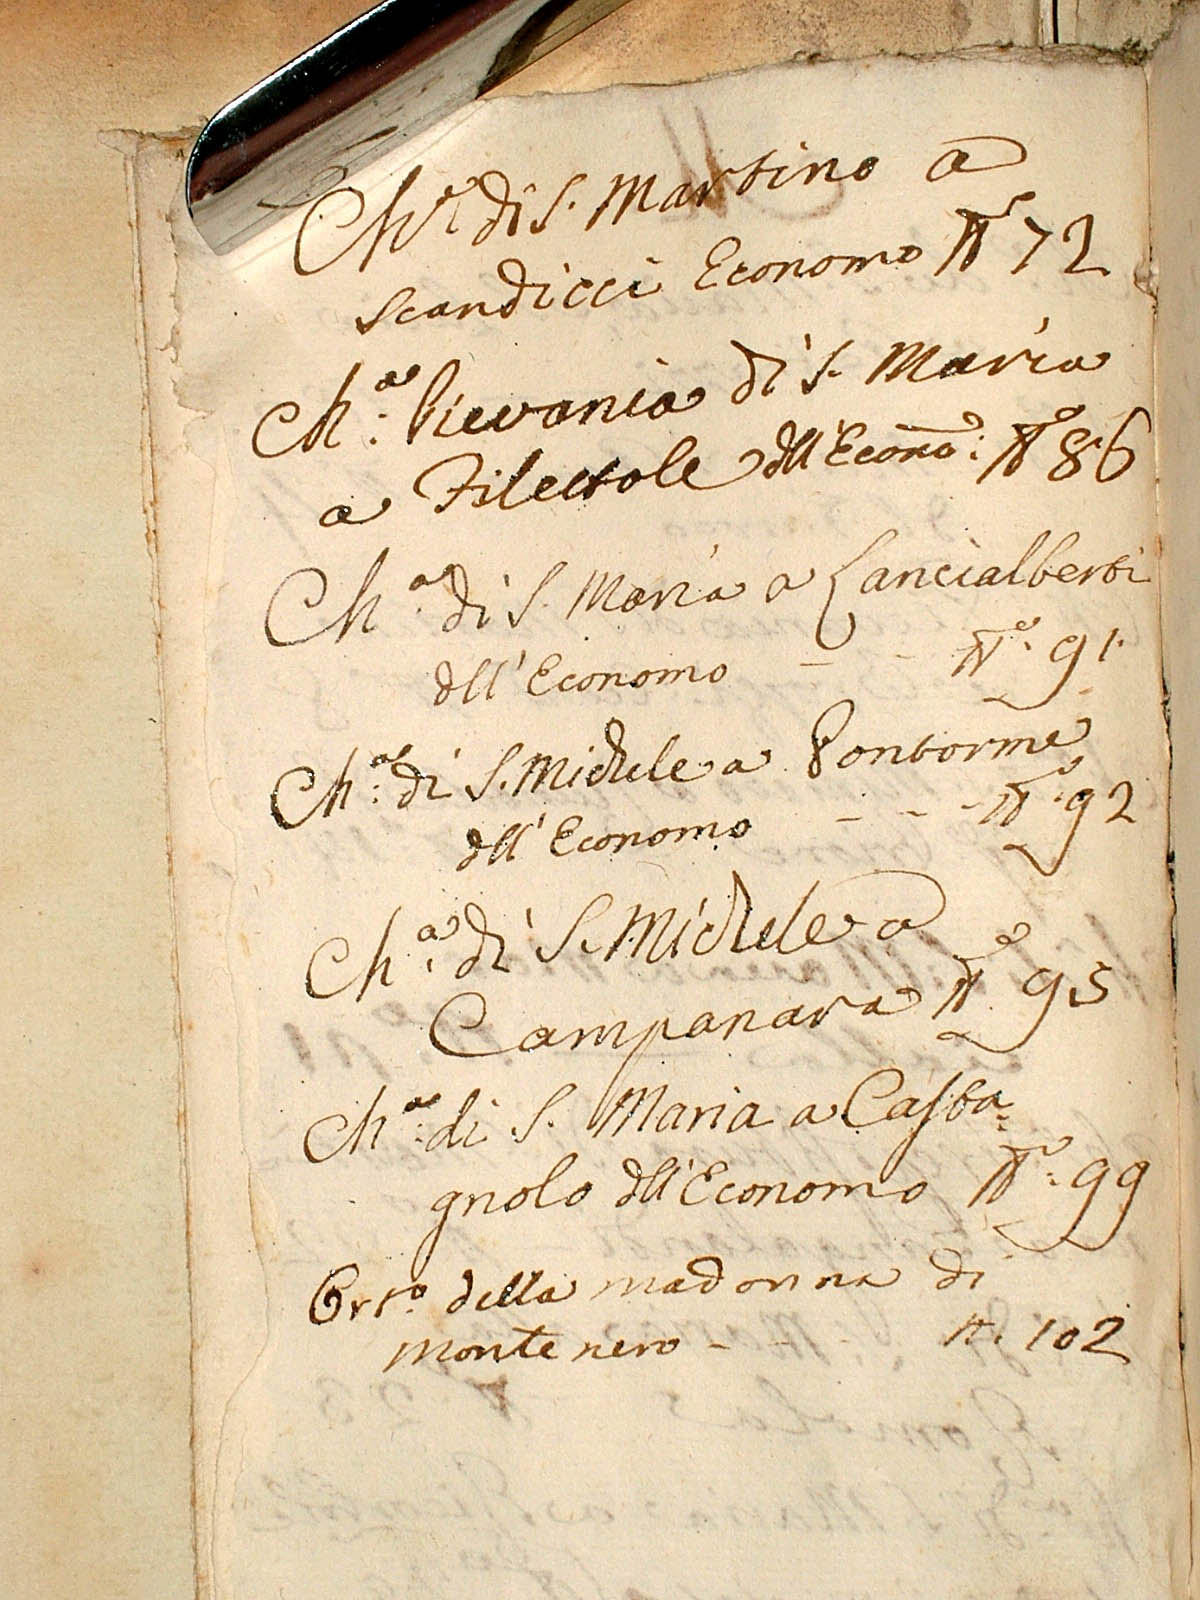 Ch.ª di S. Martino a
Scandicci Economo Nº 72
Ch.ª Pievania di S. Maria
a Filettole dll'Econo: Nº 86
Ch.ª di S. Maria a Lancialberti
dll'Economo - - Nº. 91.
Ch.ª: di S. Michele a Pontorme
dll'Economo - - - Nº. 92
Ch.ª. di S. Michele a
Campanara Nº. 95
Ch.ª: di S. Maria a Casta=
gnolo dll'Economo Nº. 99
della madonna di
monte nero - - N. 102